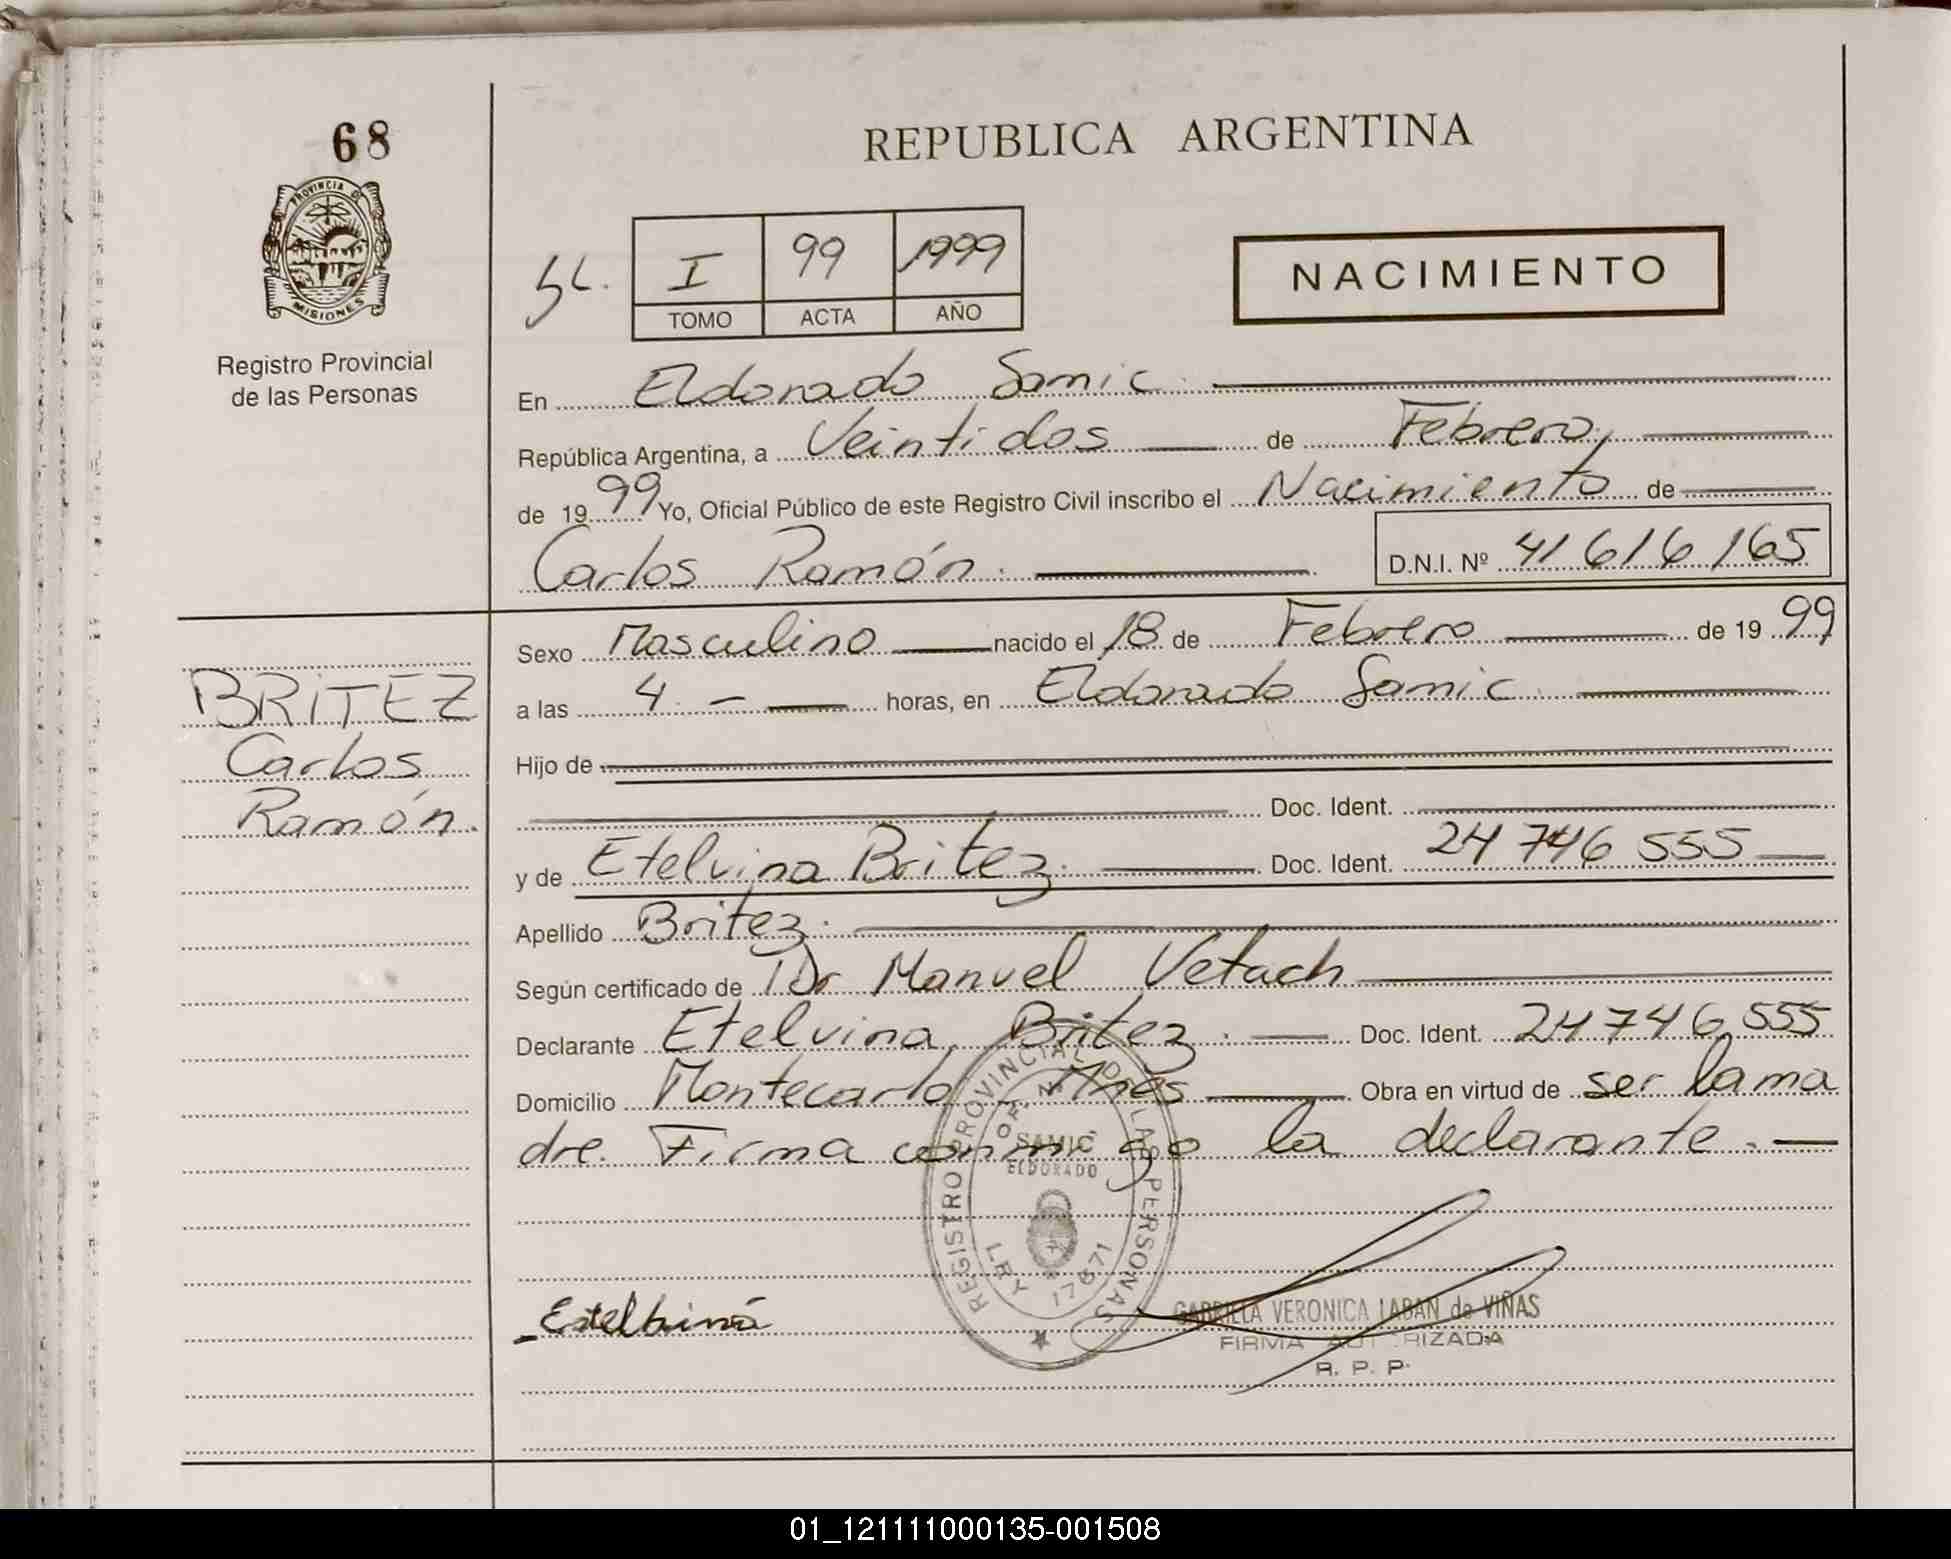 68
REPUBLICA ARGENTINA
PROVINCIA D
MISIONES
Registro Provincial
de las Personas
I 99 1999
TOMO ACTA AÑO
NACIMIENTO
En Eldorado Samic.
República Argentina, a Veintidos de Febrero,
de 1999 Yo, Oficial Público de este Registro Civil inscribo el Nacimiento de
Carlos Ramón. D.N.I. Nº 41616165
Sexo Masculino nacido el 18 de Febrero de 1999
BRITEZ
Carlos
Ramón.
a las 4 - horas, en Eldorado Samic.
Hijo de
Doc. Ident.
y de Etelvina Britez. Doc. Ident. 24 746 555
Apellido Britez.
Según certificado de Dr Manuel Vetach
Declarante Etelvina Britez. Doc. Ident. 24746555
Domicilio Montecarlo - Mnes Obra en virtud de ser la ma
dre. Firma conmigo la declarante.-
REGISTRO PROVINCIAL DE LAS PERSONAS
OF. Nº
SAMIC
ELDORADO
LEY 17671
Estelbina
GABRIELA VERONICA LABAN de VIÑAS
FIRMA AUTORIZADA
R. P. P.
01_121111000135-001508